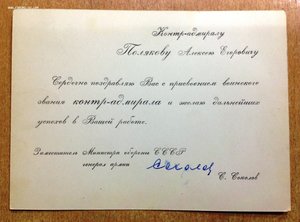 Контр-адмиралу
Полякову Алексею Егоровичу
Сердечно поздравляю Вас с присвоением воинского
звания контр-адмирала и желаю дальнейших
успехов в Вашей работе.
Заместитель Министра обороны СССР
генерал армии
С. Соколов